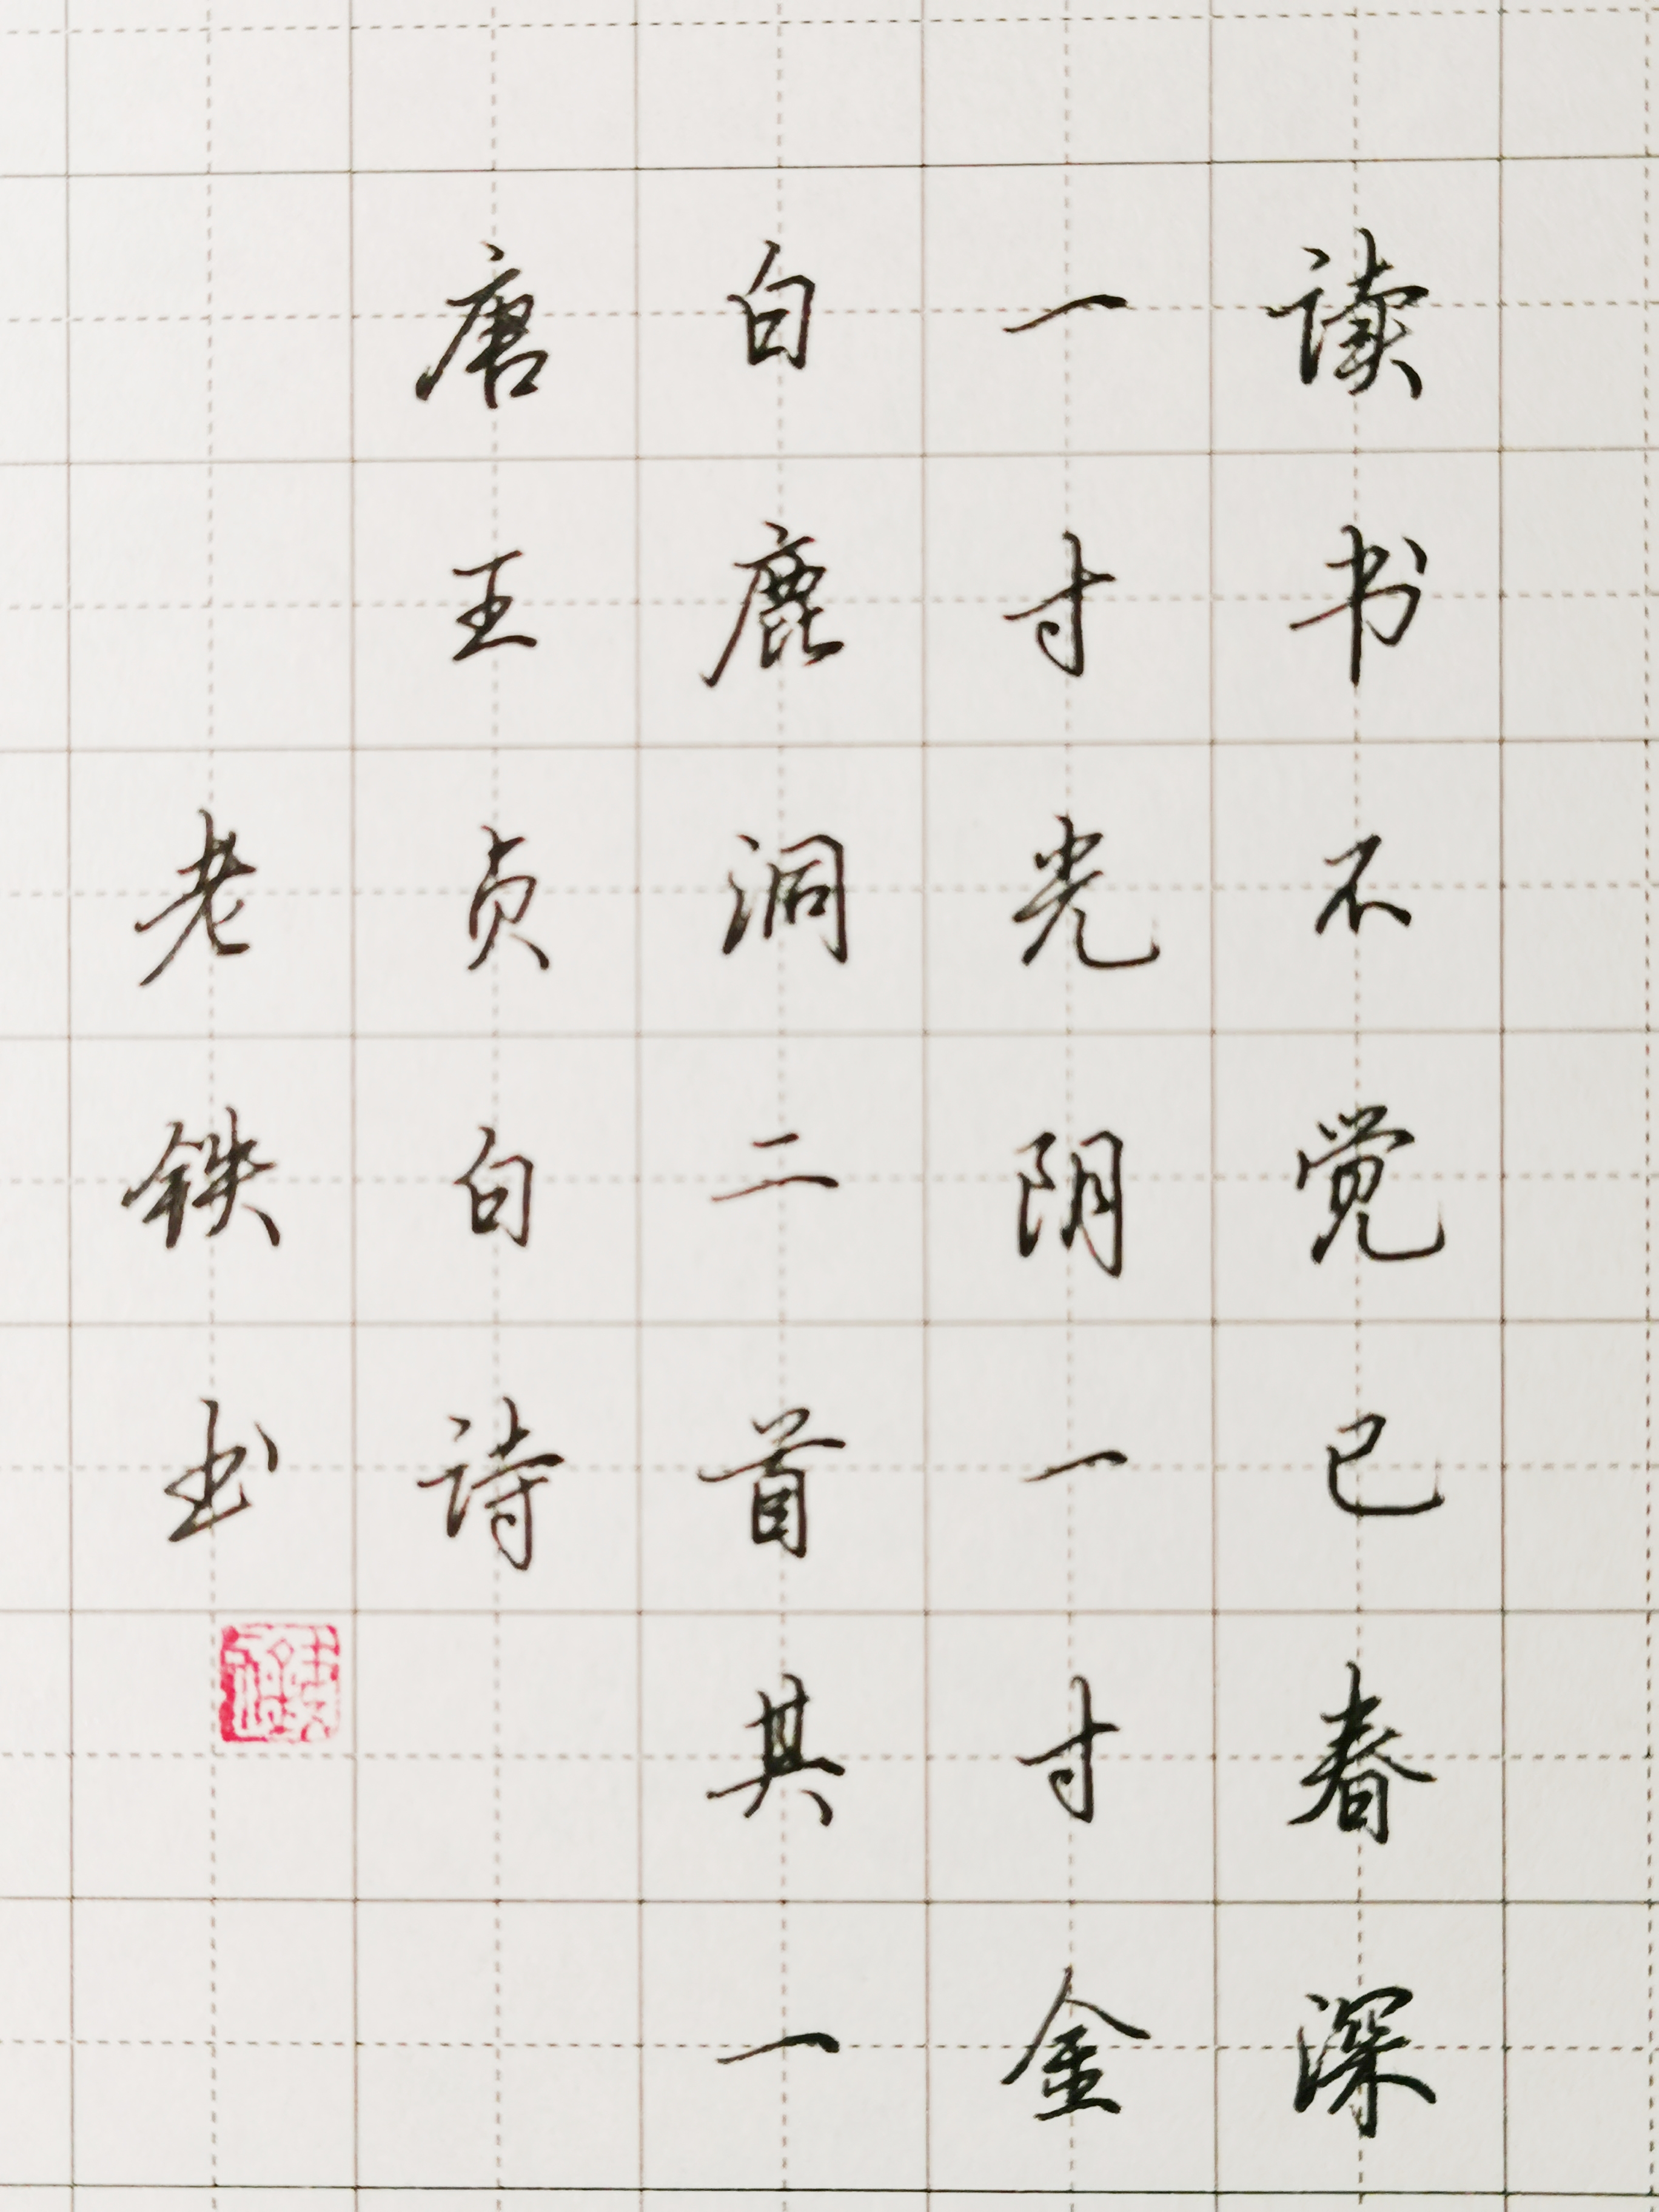 读书不觉已春深
一寸光阴一寸金
白鹿洞二首其一
唐王贞白诗
老铁书